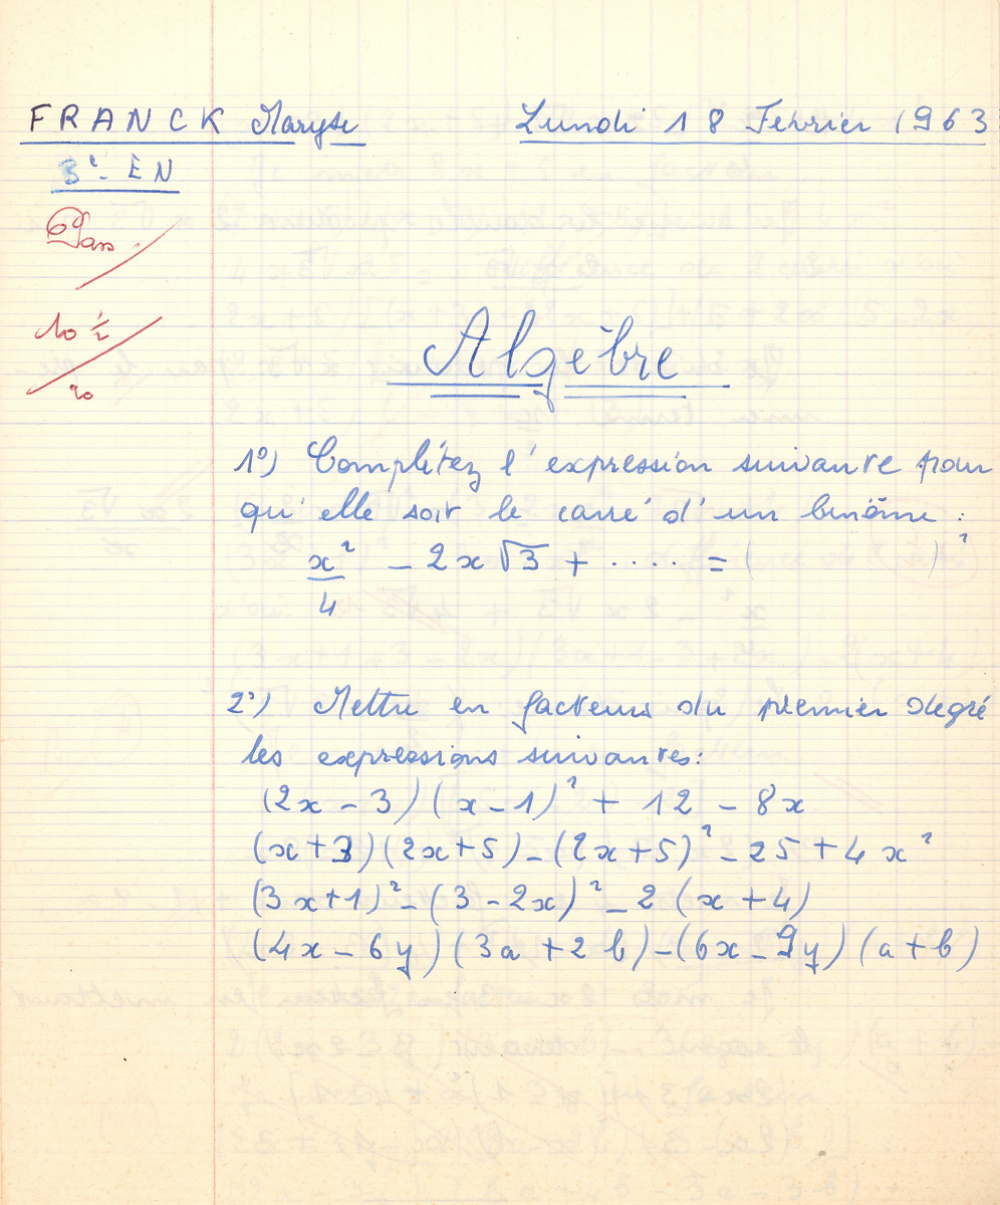 FRANCK Maryse Lundi 18 Février 1963
3e EN
Pass.
10 ½
20
Algèbre
1°) Complétez l'expression suivante pour
qu'elle soit le carré d'un binôme :
x²/4 - 2x √3 + ..... = ( )²
2°) Mettre en facteurs du premier degré
les expressions suivantes:
(2x - 3) (x - 1)² + 12 - 8x
(x+3) (2x+5) - (2x+5)² - 25 + 4x²
(3x+1)² - (3 - 2x)² - 2 (x + 4)
(4x - 6y) (3a + 2b) - (6x - 9y) (a + b)